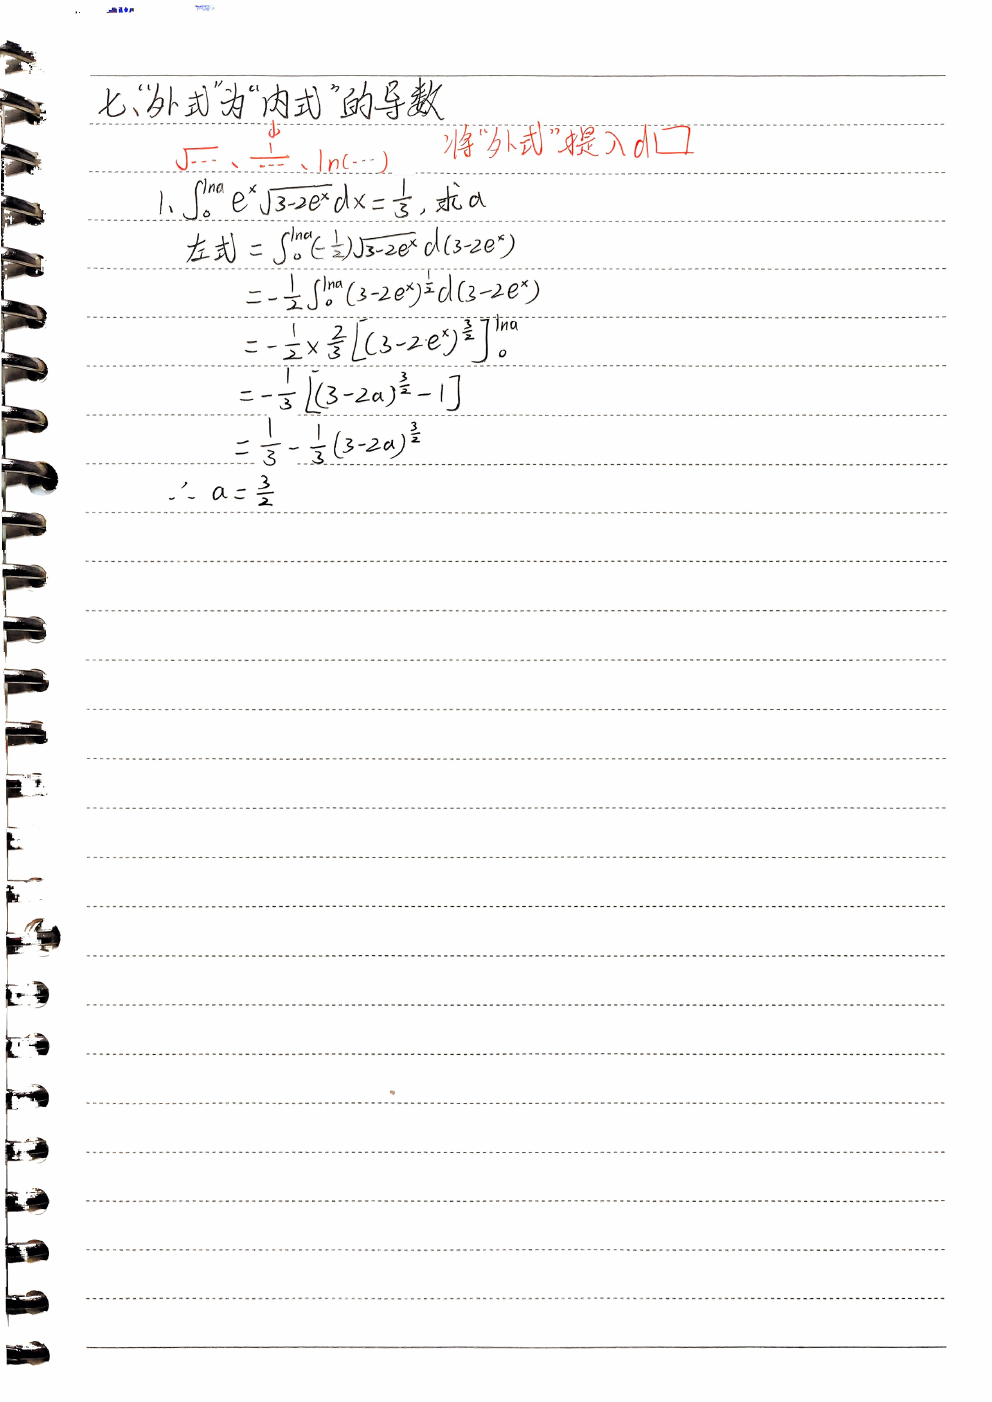 七、“外式”为“内式”的导数
√⋯、1/⋯、ln(⋯) 将“外式”提入d□
1、∫₀^{lna} eˣ√(3-2eˣ)dx = 1/3, 求a
左式 = ∫₀^{lna} (-1/2)√(3-2eˣ) d(3-2eˣ)
= -1/2 ∫₀^{lna} (3-2eˣ)^{1/2} d(3-2eˣ)
= -1/2 × 2/3 [(3-2eˣ)^{3/2}]₀^{lna}
= -1/3 [(3-2a)^{3/2} - 1]
= 1/3 - 1/3 (3-2a)^{3/2}
∴ a = 3/2